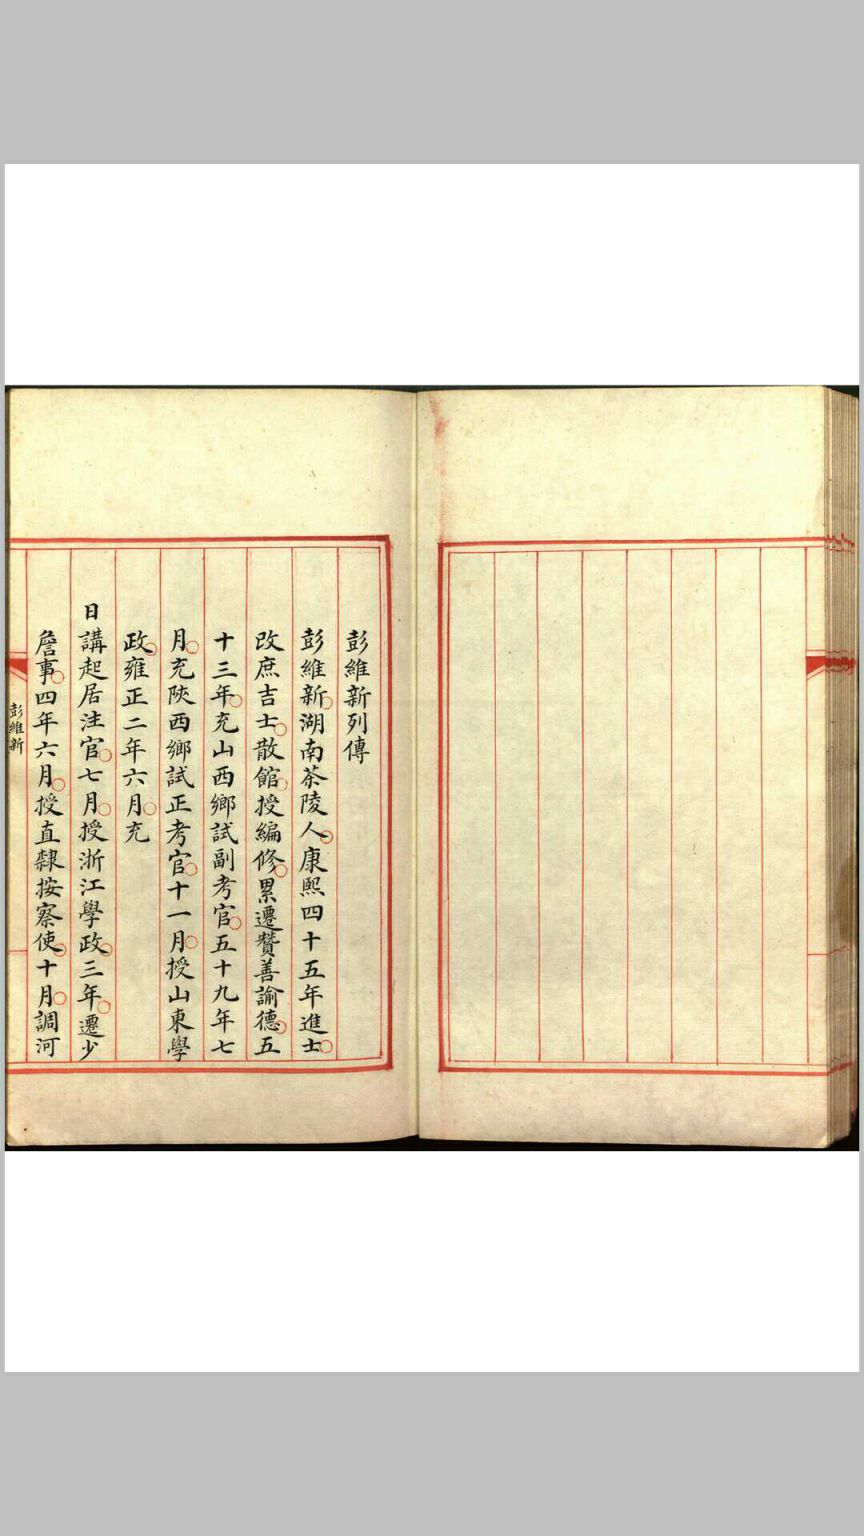 彭維新列傳
彭維新湖南茶陵人康熙四十五年進士
改庶吉士散館授編修累遷贊善諭德五
十三年充山西鄉試副考官五十九年七
月充陝西鄉試正考官十一月授山東學
政雍正二年六月充
日講起居注官七月授浙江學政三年遷少
詹事四年六月授直隸按察使十月調河
彭維新